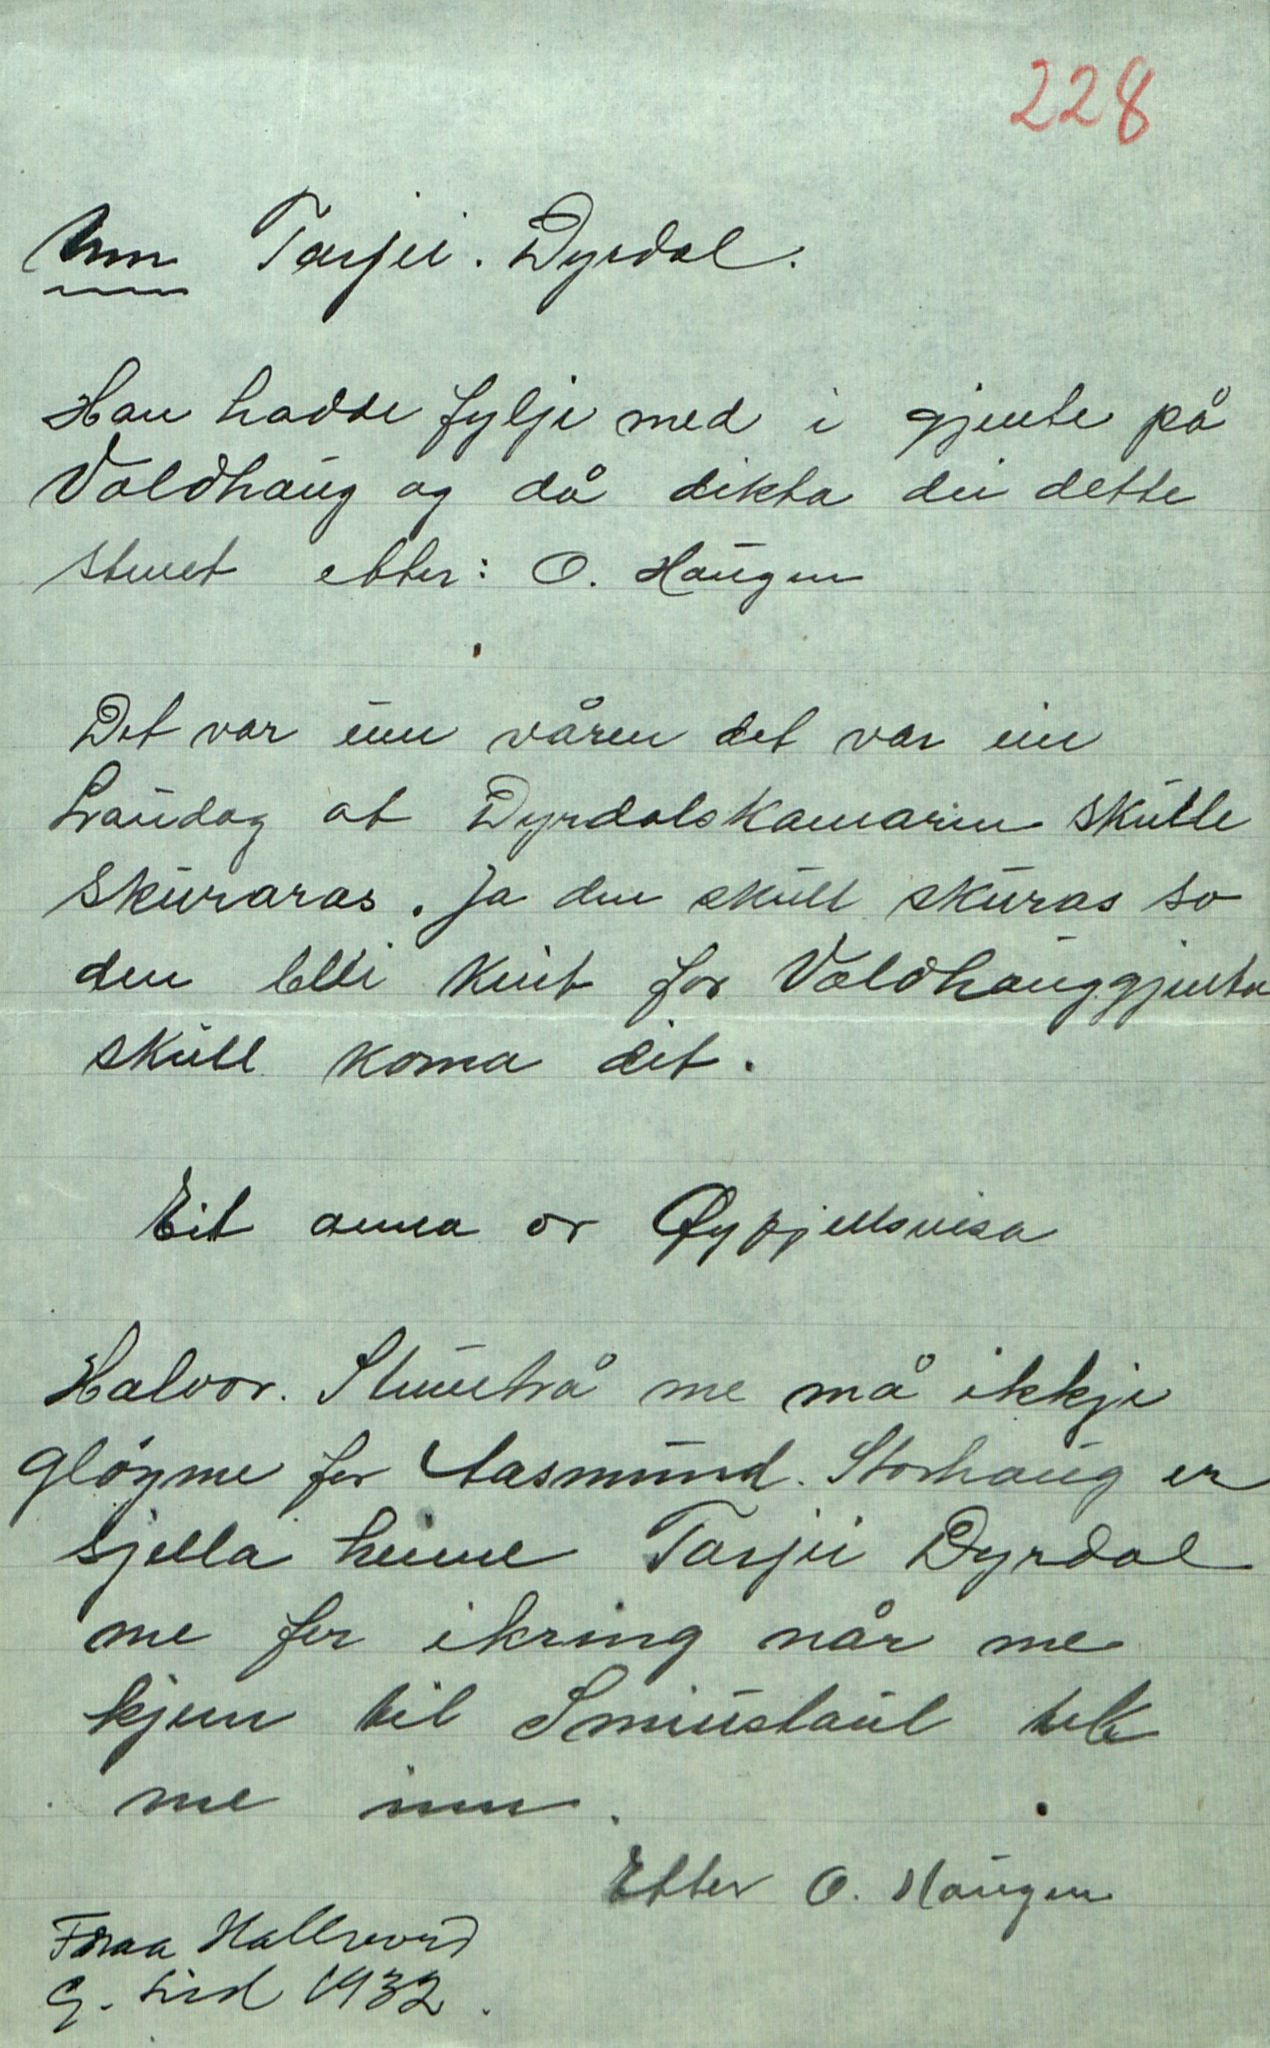 228
Um Tarjei. Dyrdal.
Han hadde fylje med i gjente på
Voldhaug og då dikta dei dette
stevet etter: O. Haugen
Det var um våren det var ein
Laudag at Dyrdalskamarin skulle
skuraras. Ja den skull skuras so
den blei kvit for Voldhauggjenta
skull koma dit.
Eit anna or Øyfjellsvisa
Halvor. Stuvetrå me må ikkje
gløyme for Aasmund. Storhaug er
sjella heime Tarjei Dyrdal
me fer ikring når me
kjem til Smiustaul tek
me inn.
Etter O. Haugen
Fraa Hallvord
G. Lid 1932.